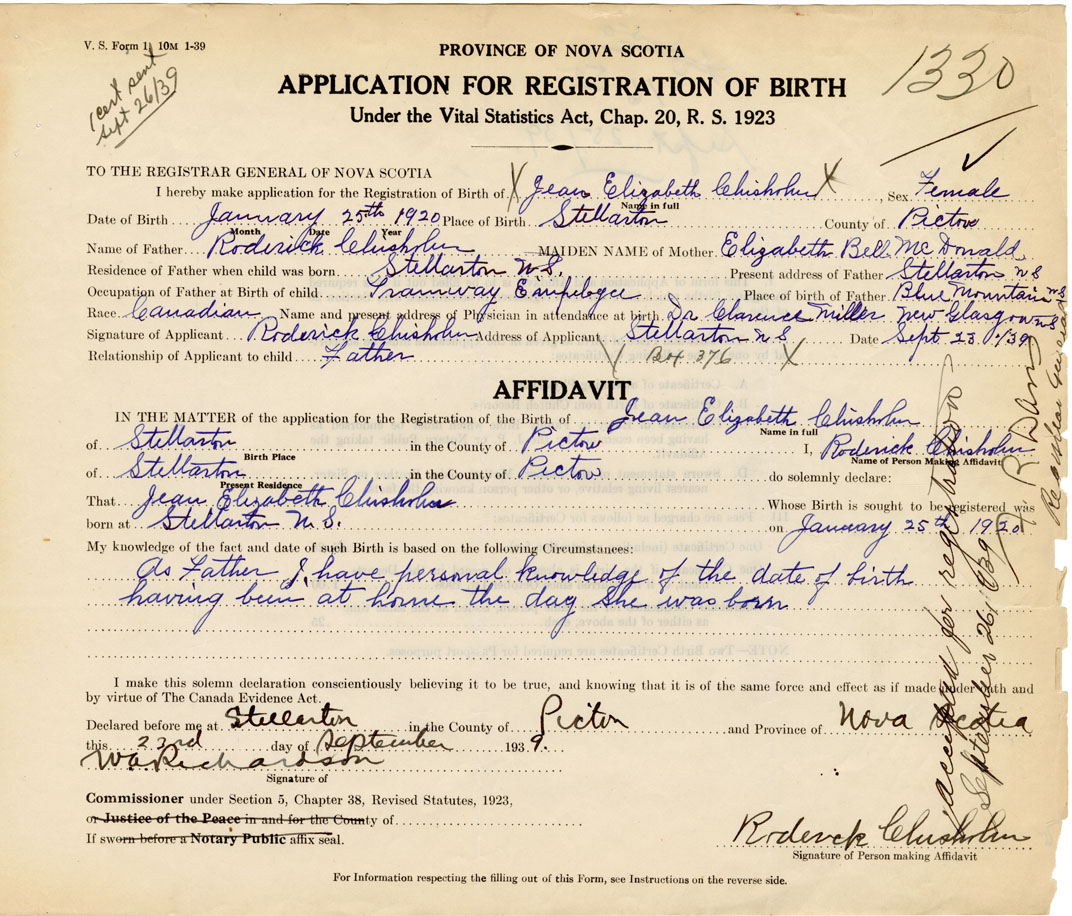 V. S. Form 1, 10M 1-39
1 cert sent
Sept 26/39
1330
PROVINCE OF NOVA SCOTIA
APPLICATION FOR REGISTRATION OF BIRTH
Under the Vital Statistics Act, Chap. 20, R. S. 1923
TO THE REGISTRAR GENERAL OF NOVA SCOTIA
I hereby make application for the Registration of Birth of X Jean Elizabeth Chisholm X, Sex Female
Name in full
Date of Birth January 25th 1920 Place of Birth Stellarton County of Pictou
Month Date Year
Name of Father Roderick Chisholm MAIDEN NAME of Mother Elizabeth Bell McDonald
Residence of Father when child was born Stellarton N.S. Present address of Father Stellarton NS
Occupation of Father at Birth of child Tramway Employee Place of birth of Father Blue Mountain NS
Race Canadian Name and present address of Physician in attendance at birth Dr Clarence Miller New Glasgow NS
Signature of Applicant Roderick Chisholm Address of Applicant Stellarton N S Date Sept 23 1939
Relationship of Applicant to child Father X Box 376 X
AFFIDAVIT
IN THE MATTER of the application for the Registration of the Birth of Jean Elizabeth Chisholm
Name in full
of Stellarton in the County of Pictou I, Roderick Chisholm
Birth Place Name of Person Making Affidavit
of Stellarton in the County of Pictou do solemnly declare:
Present Residence
That Jean Elizabeth Chisholm Whose Birth is sought to be registered was
born at Stellarton N.S. on January 25th 1920
My knowledge of the fact and date of such Birth is based on the following Circumstances:
As Father I, have personal knowledge of the date of birth
having been at home the day she was born
I make this solemn declaration conscientiously believing it to be true, and knowing that it is of the same force and effect as if made under oath and
by virtue of The Canada Evidence Act.
Declared before me at Stellarton in the County of Pictou and Province of Nova Scotia
this 23rd day of September 1939.
W A Richardson
Signature of
Commissioner under Section 5, Chapter 38, Revised Statutes, 1923,
or Justice of the Peace in and for the County of
If sworn before a Notary Public affix seal.
Roderick Chisholm
Signature of Person making Affidavit
For Information respecting the filling out of this Form, see Instructions on the reverse side.
accepted for registration
September 26, 1939